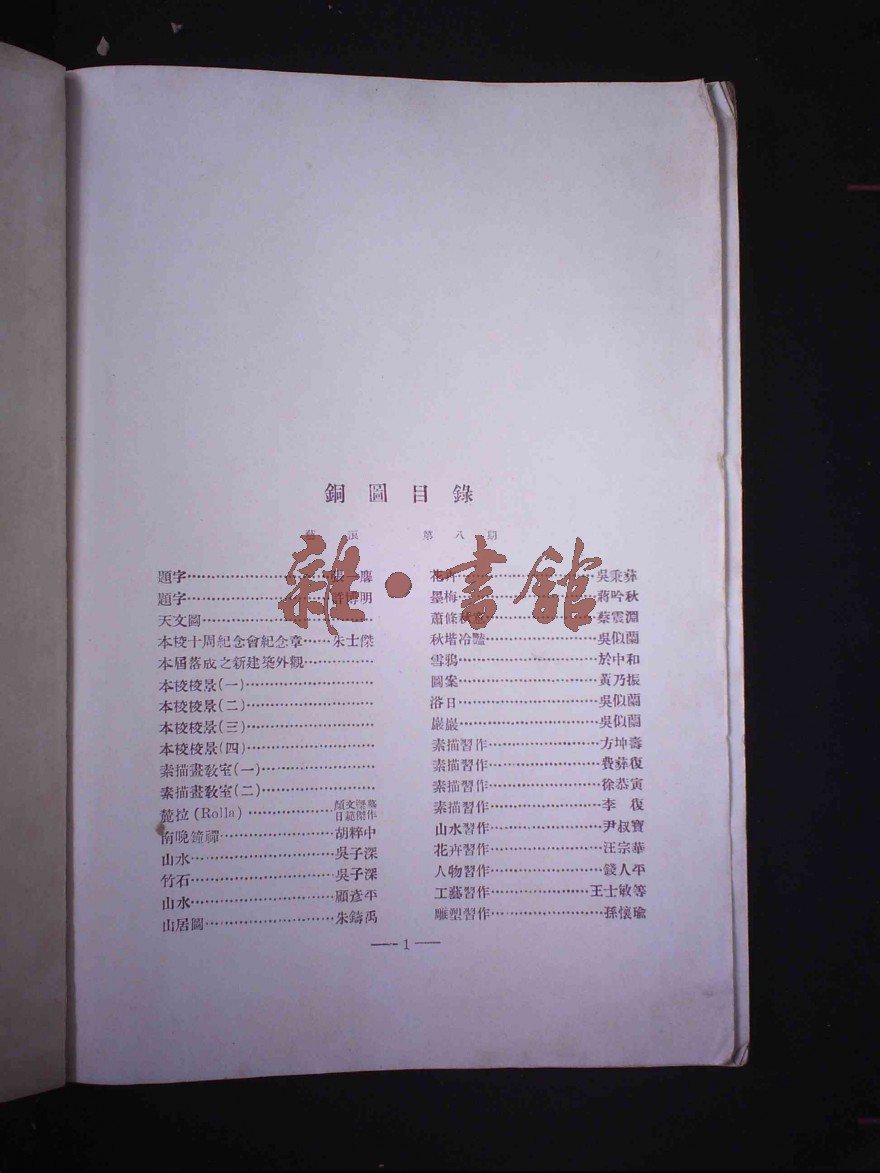 銅圖目錄
藝浪 第八期
題字……張一麐
題字……博明
天文圖……
本校十周紀念會紀念章……朱士傑
本屆落成之新建築外觀……
本校校景(一)……
本校校景(二)……
本校校景(三)……
本校校景(四)……
素描畫教室(一)……
素描畫教室(二)……
蘿拉(Rolla)……顏文樑摹 日範傑作
南晚鐘禪……胡粹中
山水……吳子深
竹石……吳子深
山水……顧彥平
山居圖……朱鑄禹
花卉……吳秉彝
墨梅……蔣吟秋
蕭條秋意……蔡雲淵
秋堦冷豔……吳似蘭
雪鴉……於中和
圖案……黃乃振
浴日……吳似蘭
巖巖……吳似蘭
素描習作……方坤壽
素描習作……費彝復
素描習作……徐恭寅
素描習作……李復
山水習作……尹叔寶
花卉習作……汪宗華
人物習作……錢人平
工藝習作……王士敏等
雕塑習作……孫懷瑜
—1—
雜·書館